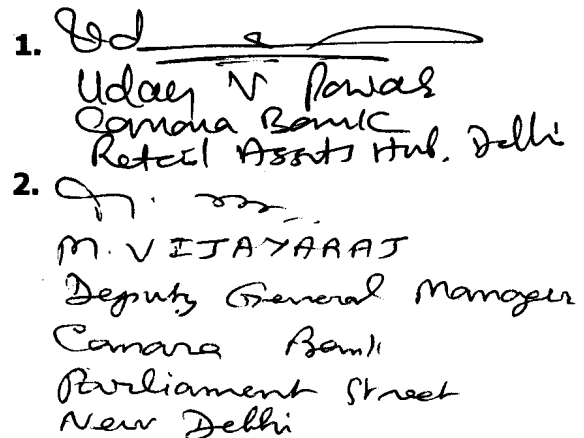 1.
Uday V Pawar
Canara Bank
Retail Assets Hub. Delhi
2.
M. VIJAYARAJ
Deputy General Manager
Canara Bank
Parliament Street
New Delhi